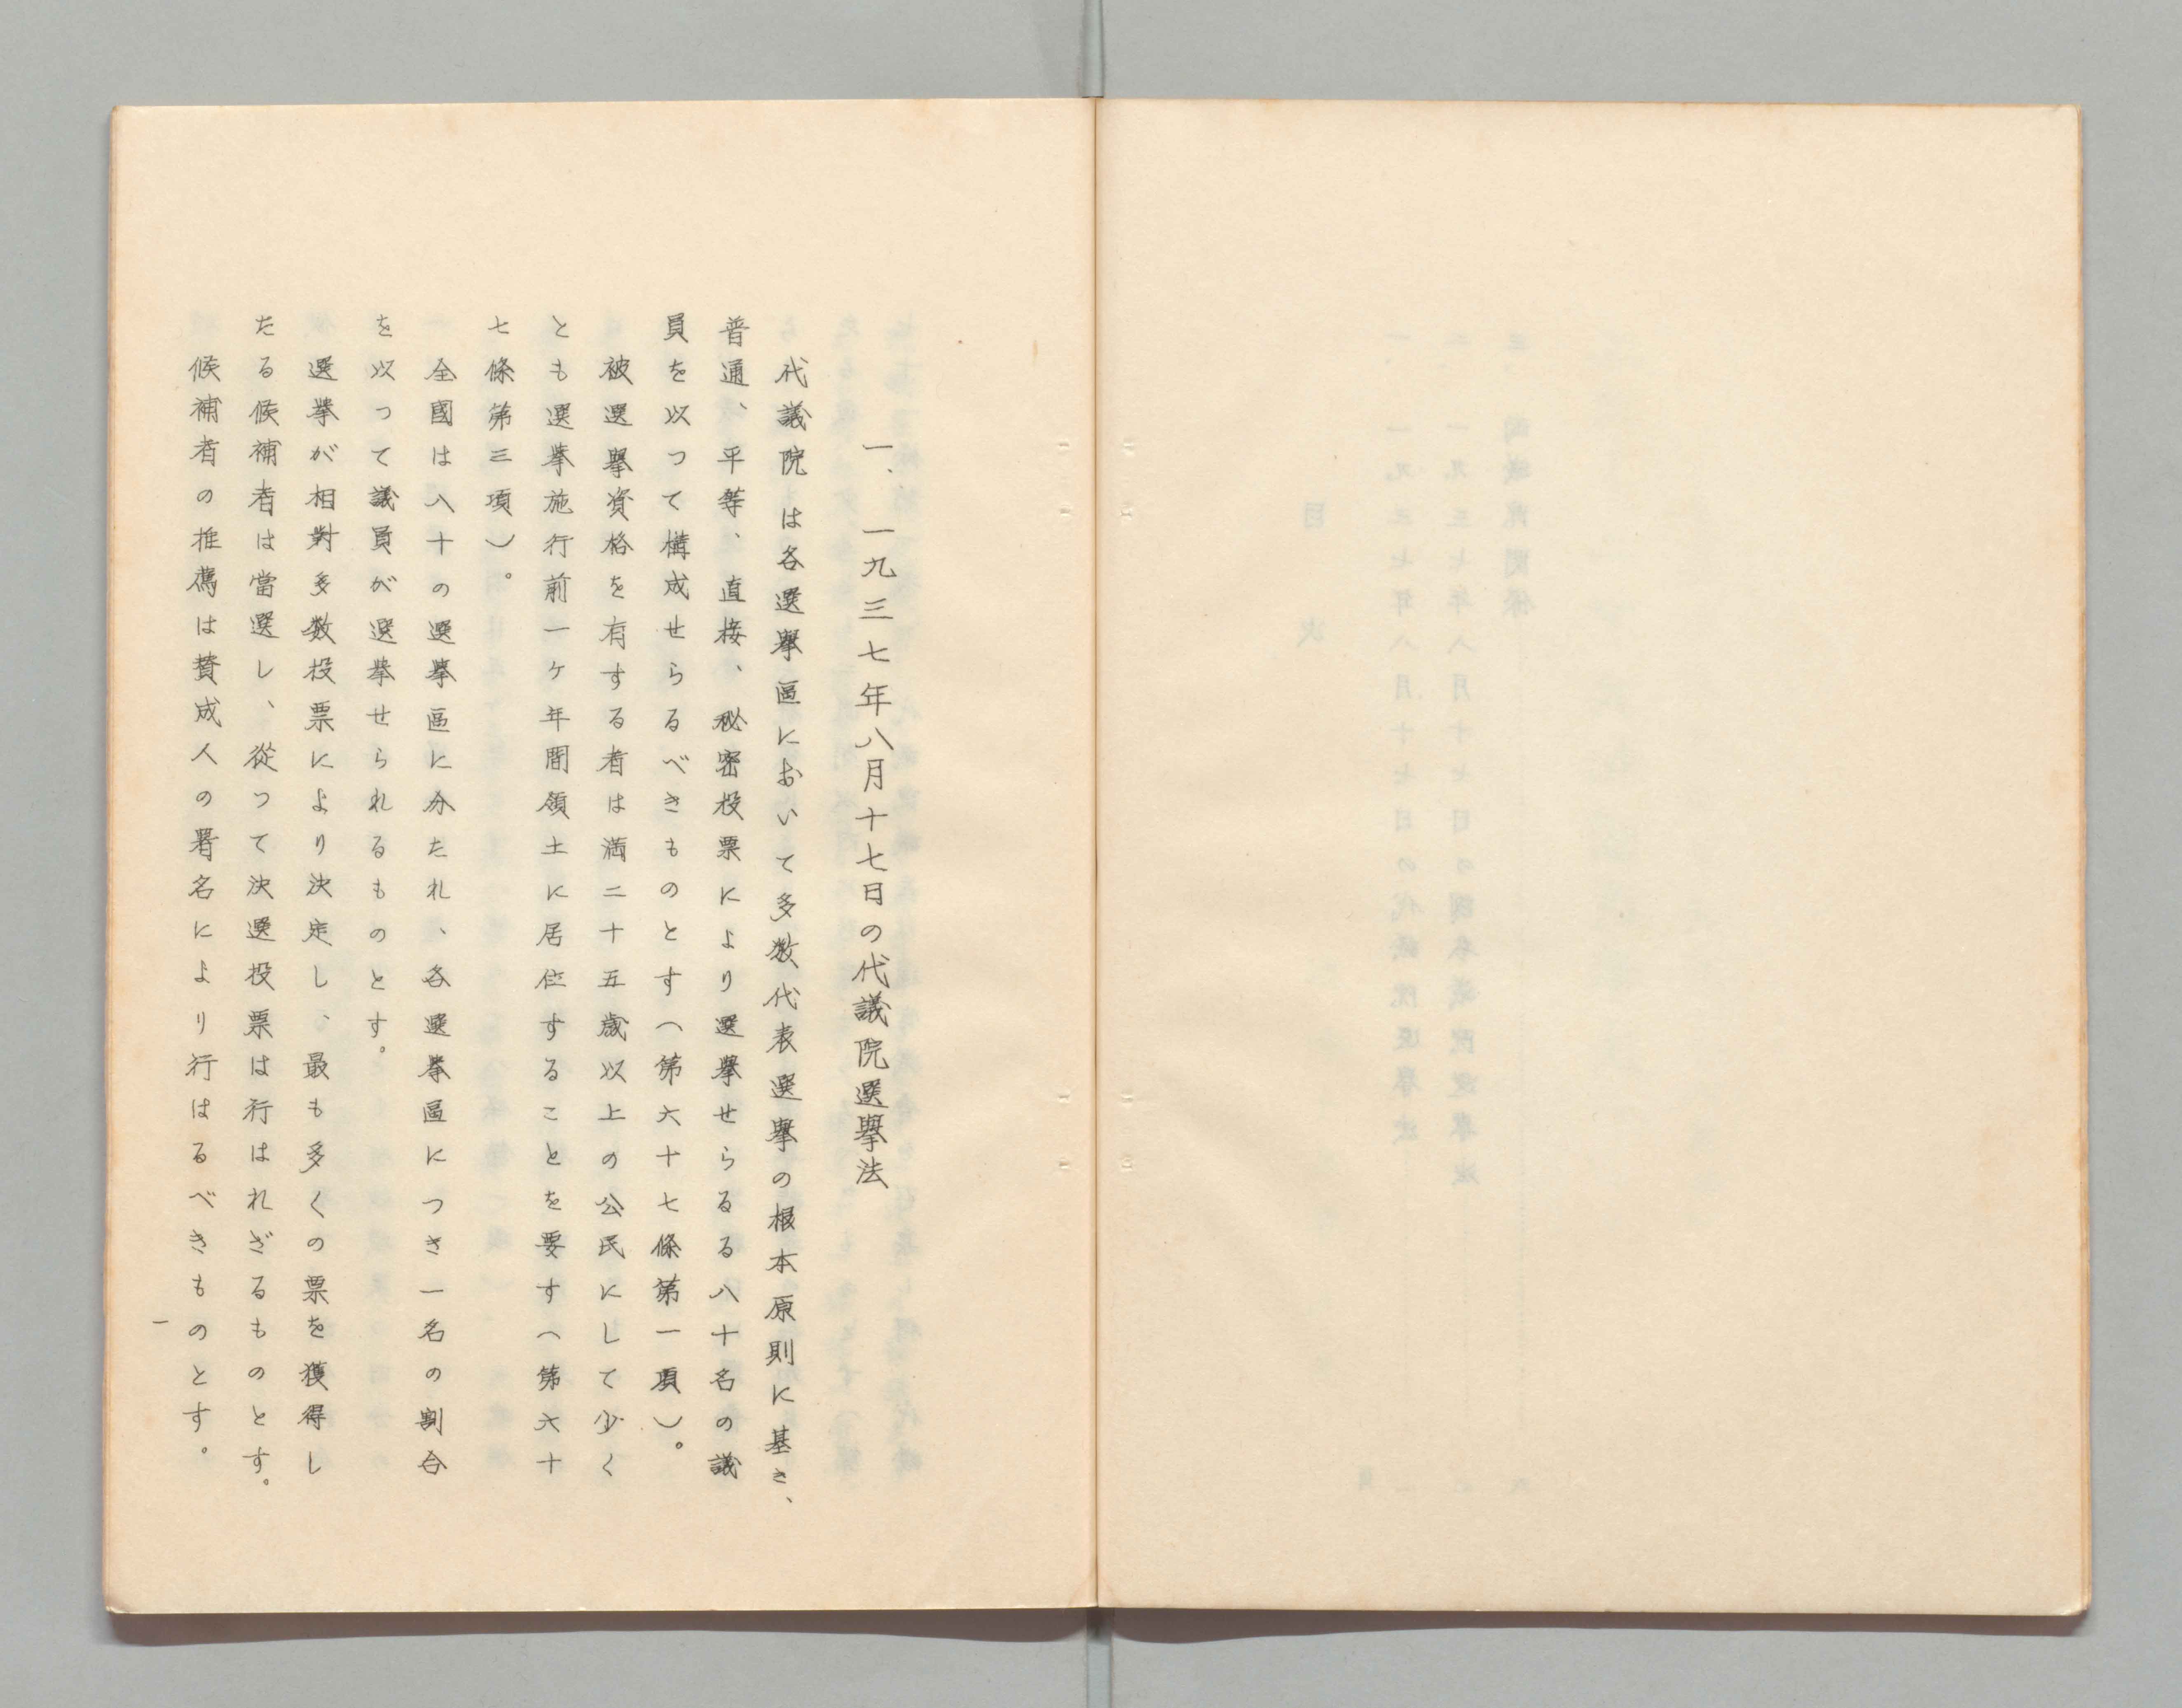 一、一九三七年八月十七日の代議院選擧法
代議院は各選擧區において多数代表選擧の根本原則に基き、
普通、平等、直接、秘密投票により選挙せらるる八十名の議
員を以つて構成せらるべきものとす（第六十七條第一項）。
被選擧資格を有する者は満二十五歳以上の公民にして少く
とも選挙施行前一ケ年間領土に居住することを要す（第六十
七條第三項）。
全國は八十の選挙區に分たれ、各選挙區につき一名の割合
を以つて議員が選挙せられるものとす。
選挙が相對多数投票により決定し、最も多くの票を獲得し
たる候補者は當選し、從つて決選投票は行はれざるものとす。
候補者の推薦は賛成人の署名により行はるべきものとす。
一